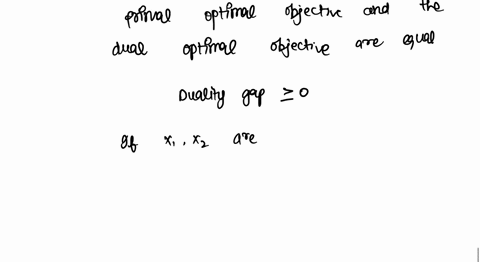 primal optimal objective and the
dual optimal objective are equal
Duality gap ≥ 0
If x₁, x₂ are